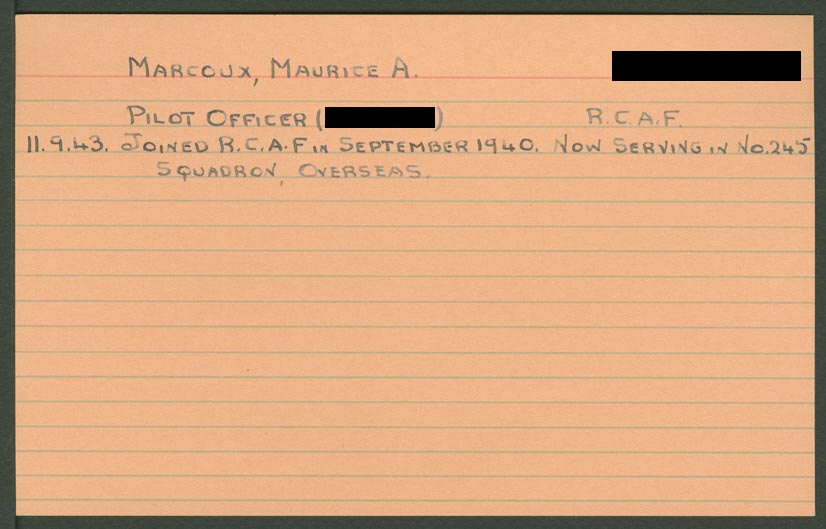 MARCOUX, MAURICE A.
PILOT OFFICER ( ) R.C.A.F.
11.9.43. JOINED R.C.A.F IN SEPTEMBER 1940. NOW SERVING IN NO.245
SQUADRON, OVERSEAS.